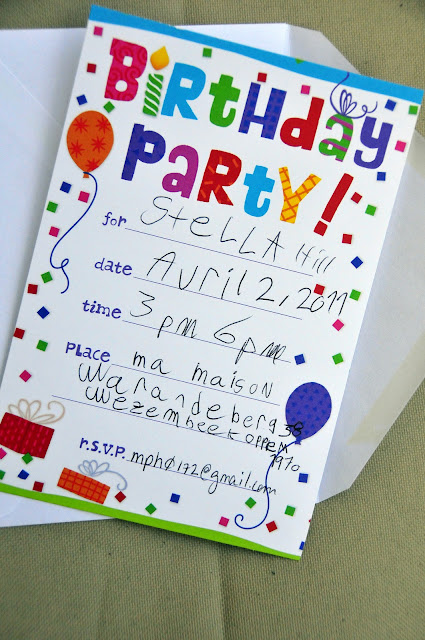 BiRtHday
PaRtY!
for Stella Hill
date Avril 2, 2011
time 3 pm 6 pm
Place ma maison
Warandeberg 38
Wezembeek oppem
1970
r.s.v.p. mph0172@gmail.com